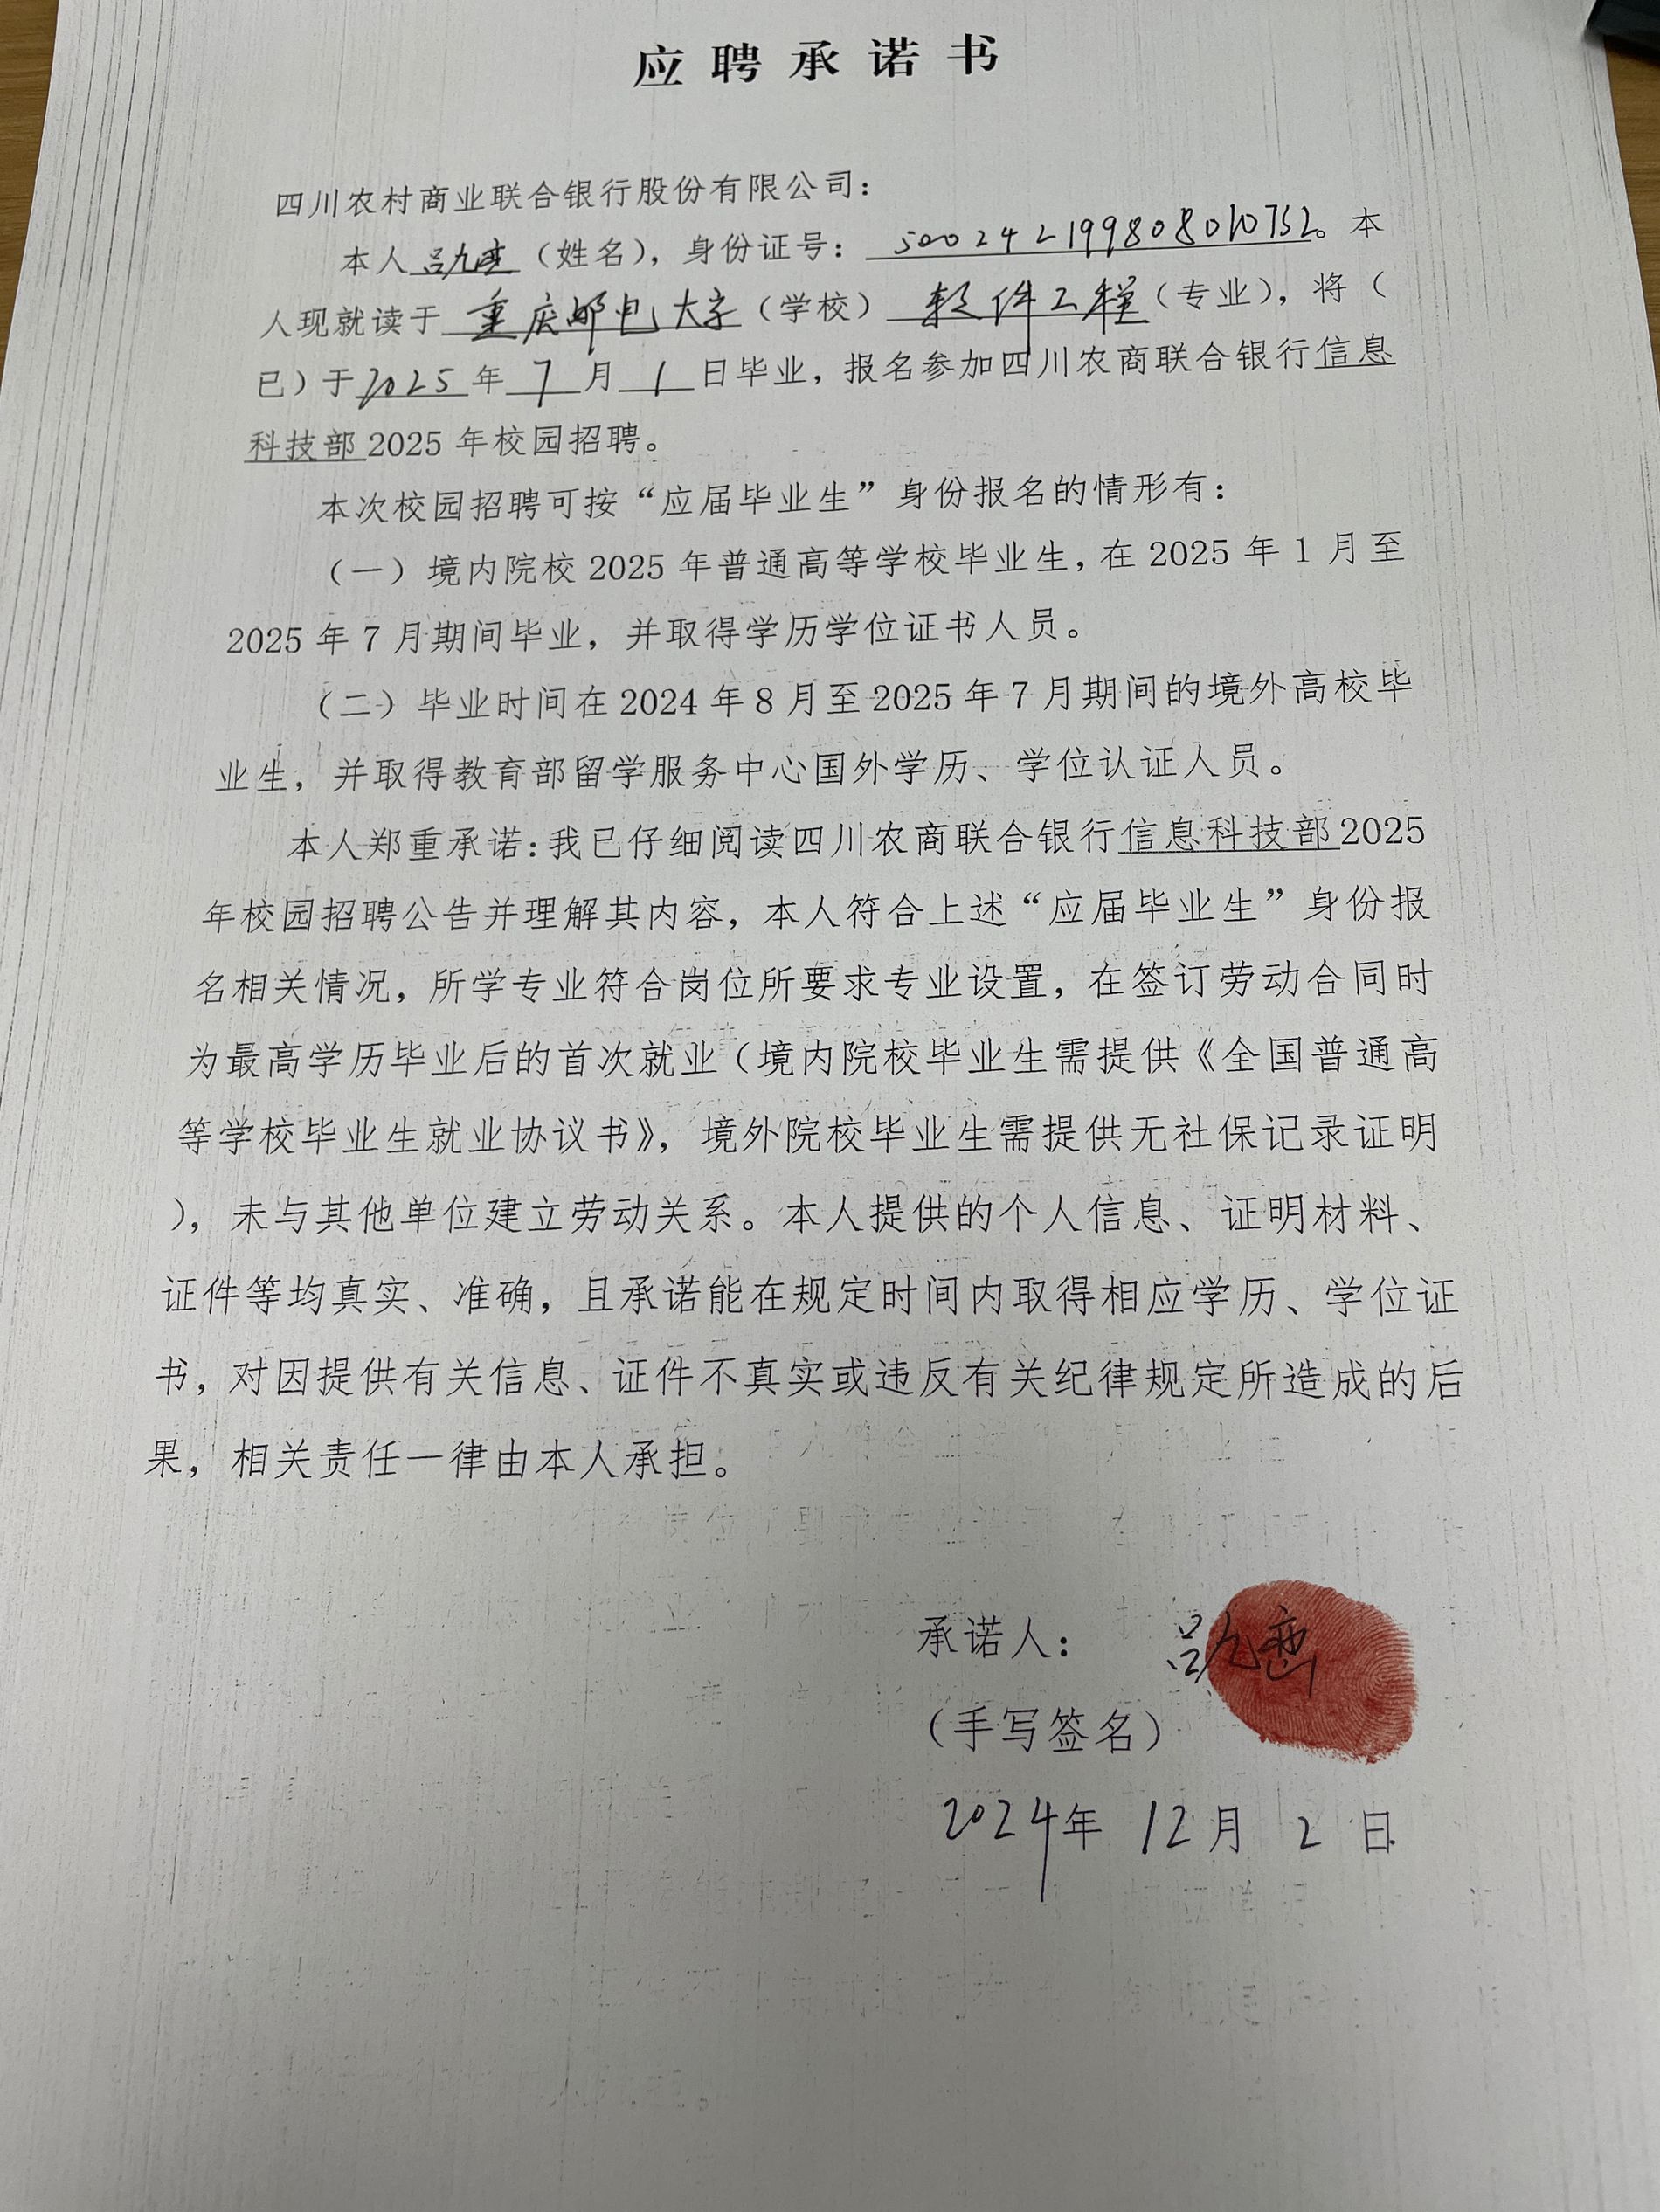 应聘承诺书
四川农村商业联合银行股份有限公司：
本人吕九峦（姓名），身份证号：500242199808010752。本
人现就读于重庆邮电大学（学校）软件工程（专业），将（
已）于2025年7月1日毕业，报名参加四川农商联合银行信息
科技部2025年校园招聘。
本次校园招聘可按“应届毕业生”身份报名的情形有：
（一）境内院校2025年普通高等学校毕业生，在2025年1月至
2025年7月期间毕业，并取得学历学位证书人员。
（二）毕业时间在2024年8月至2025年7月期间的境外高校毕
业生，并取得教育部留学服务中心国外学历、学位认证人员。
本人郑重承诺：我已仔细阅读四川农商联合银行信息科技部2025
年校园招聘公告并理解其内容，本人符合上述“应届毕业生”身份报
名相关情况，所学专业符合岗位所要求专业设置，在签订劳动合同时
为最高学历毕业后的首次就业（境内院校毕业生需提供《全国普通高
等学校毕业生就业协议书》，境外院校毕业生需提供无社保记录证明
），未与其他单位建立劳动关系。本人提供的个人信息、证明材料、
证件等均真实、准确，且承诺能在规定时间内取得相应学历、学位证
书，对因提供有关信息、证件不真实或违反有关纪律规定所造成的后
果，相关责任一律由本人承担。
承诺人：吕九峦
（手写签名）
2024年12月2日